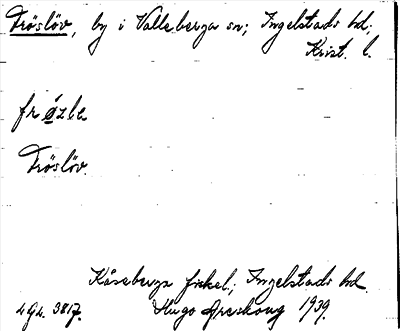 Fröslöv, by i Valleberga sn; Ingelstads hd;
Krist. l.
frǿzlę
Fröslöv.
Kåseberga fiskel.; Ingelstads hd.
4 Gr. 3817. Hugo Areskoug 1939.